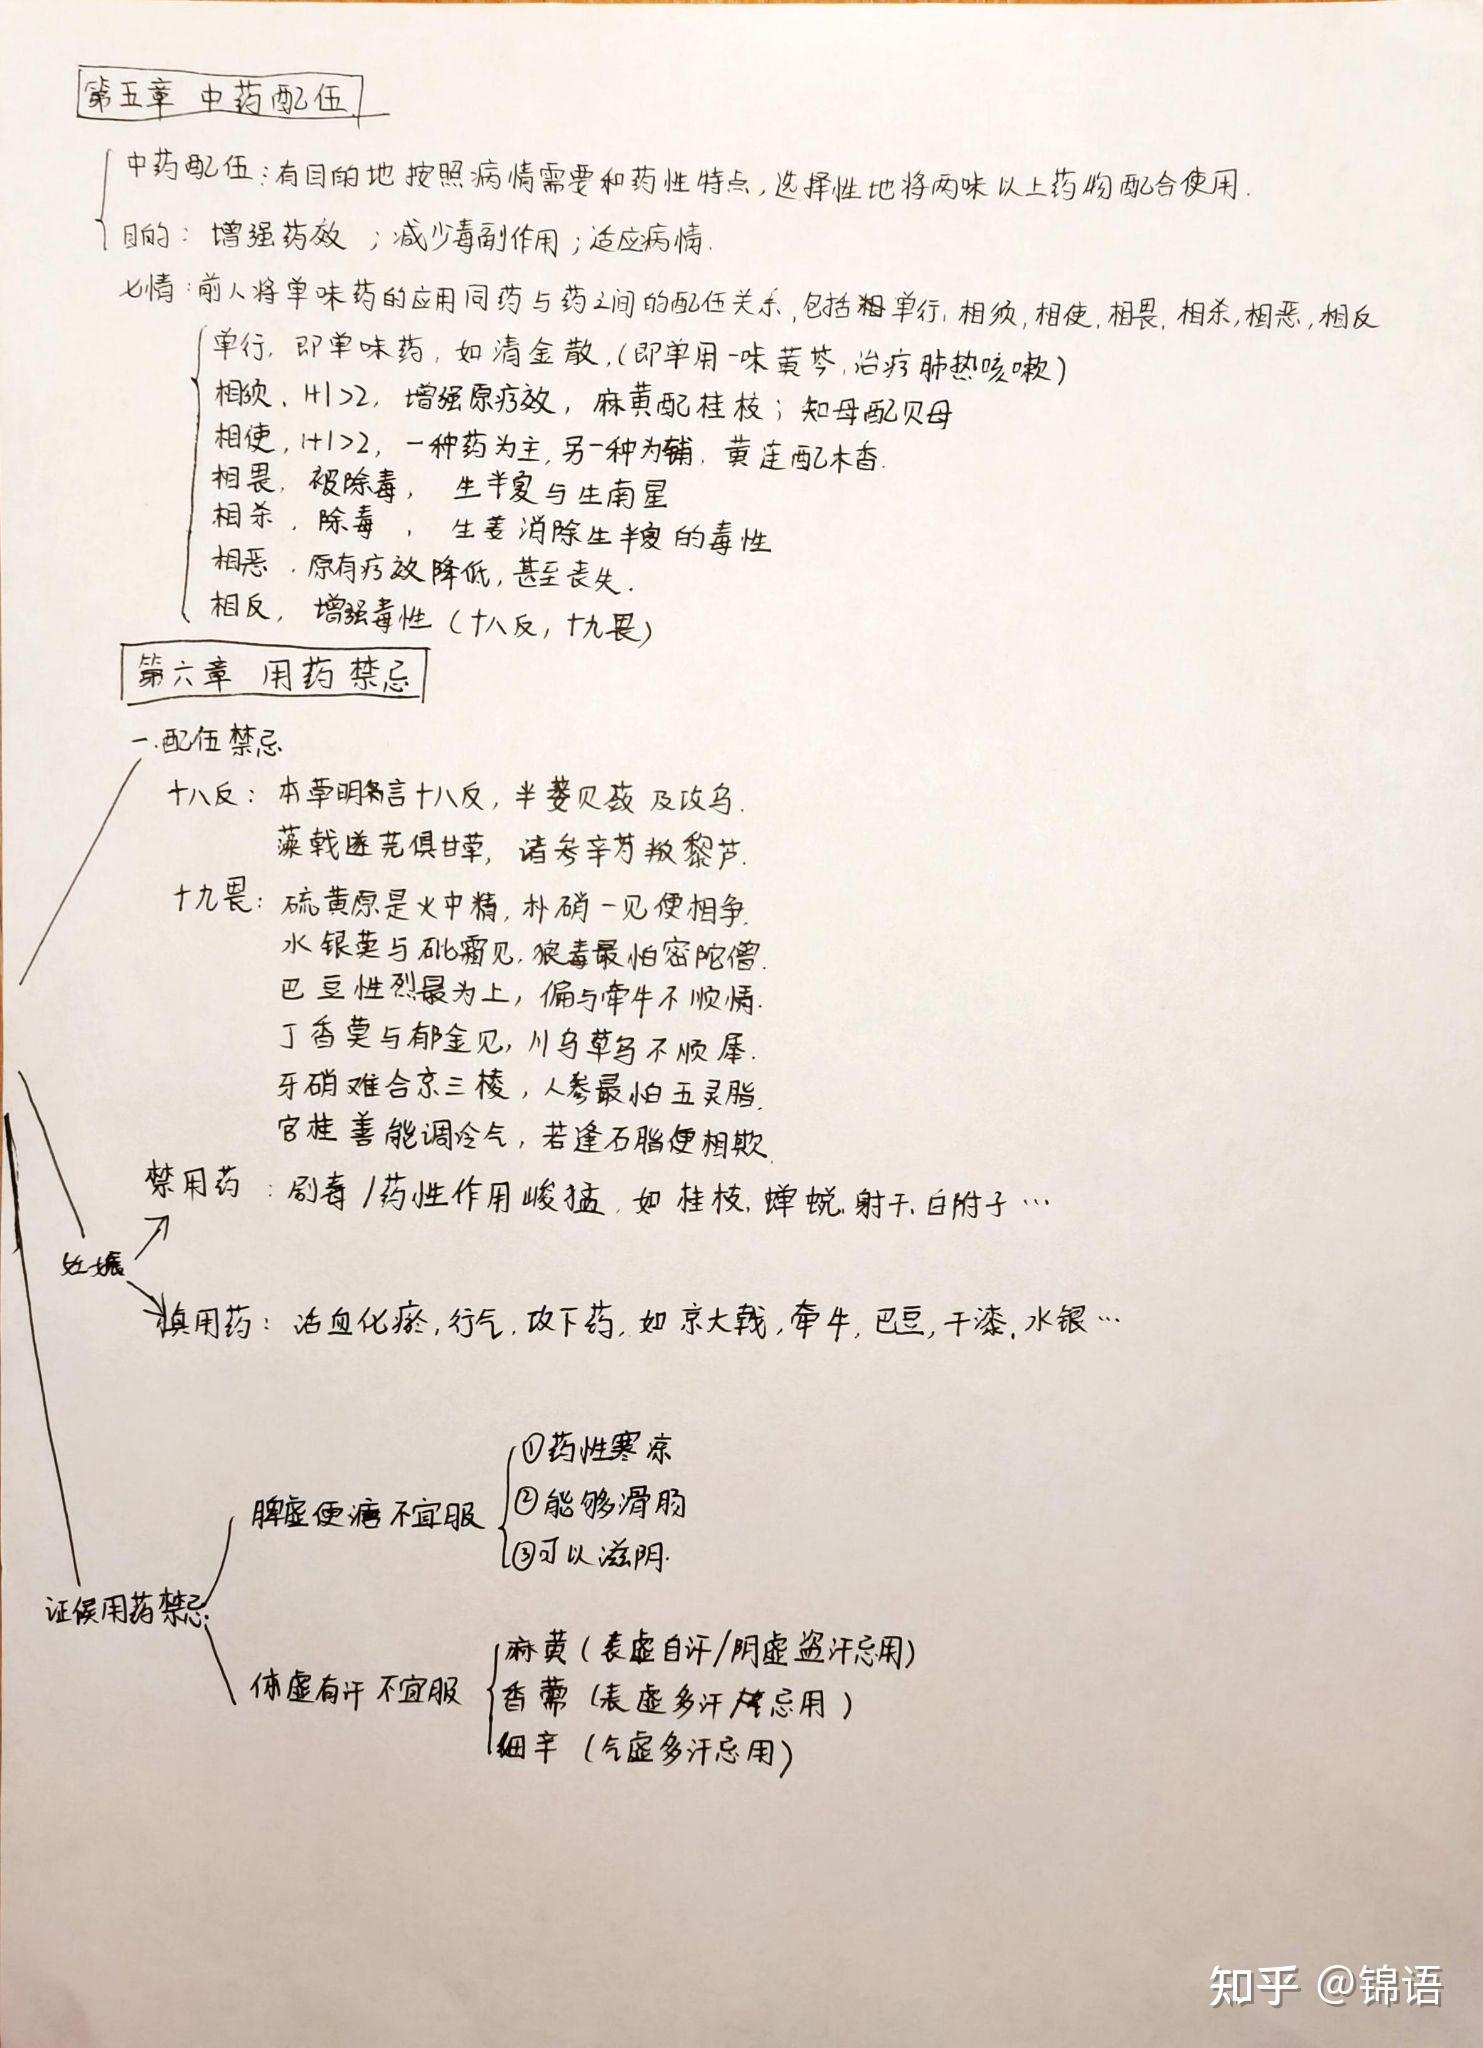 第五章 中药配伍
中药配伍:有目的地按照病情需要和药性特点,选择性地将两味以上药物配合使用.
目的: 增强药效 ;减少毒副作用;适应病情.
七情:前人将单味药的应用同药与药之间的配伍关系,包括单行,相须,相使,相畏,相杀,相恶,相反
单行,即单味药,如清金散,(即单用一味黄芩,治疗肺热咳嗽)
相须、1+1>2,增强原疗效,麻黄配桂枝;知母配贝母
相使,1+1>2,一种药为主,另一种为辅.黄连配木香.
相畏、被除毒, 生半夏与生南星
相杀、除毒, 生姜消除生半夏的毒性
相恶、原有疗效降低,甚至丧失.
相反,增强毒性(十八反,十九畏)
第六章 用药禁忌
一.配伍禁忌
十八反: 本草明言十八反,半蒌贝蔹及攻乌.
藻戟遂芫俱甘草,诸参辛芍叛黎芦.
十九畏: 硫黄原是火中精,朴硝一见便相争.
水银莫与砒霜见,狼毒最怕密陀僧.
巴豆性烈最为上,偏与牵牛不顺情.
丁香莫与郁金见,川乌草乌不顺犀.
牙硝难合京三棱,人参最怕五灵脂.
官桂善能调冷气,若逢石脂便相欺.
禁用药:剧毒/药性作用峻猛,如桂枝,蝉蜕,射干,白附子…
妊娠
慎用药:活血化瘀,行气,攻下药,如京大戟,牵牛,巴豆,干漆,水银…
①药性寒凉
脾虚便溏不宜服
②能够滑肠
③可以滋阴.
证候用药禁忌
麻黄(表虚自汗/阴虚盗汗忌用)
体虚有汗不宜服
香薷(表虚多汗忌用)
细辛(气虚多汗忌用)
知乎 @锦语